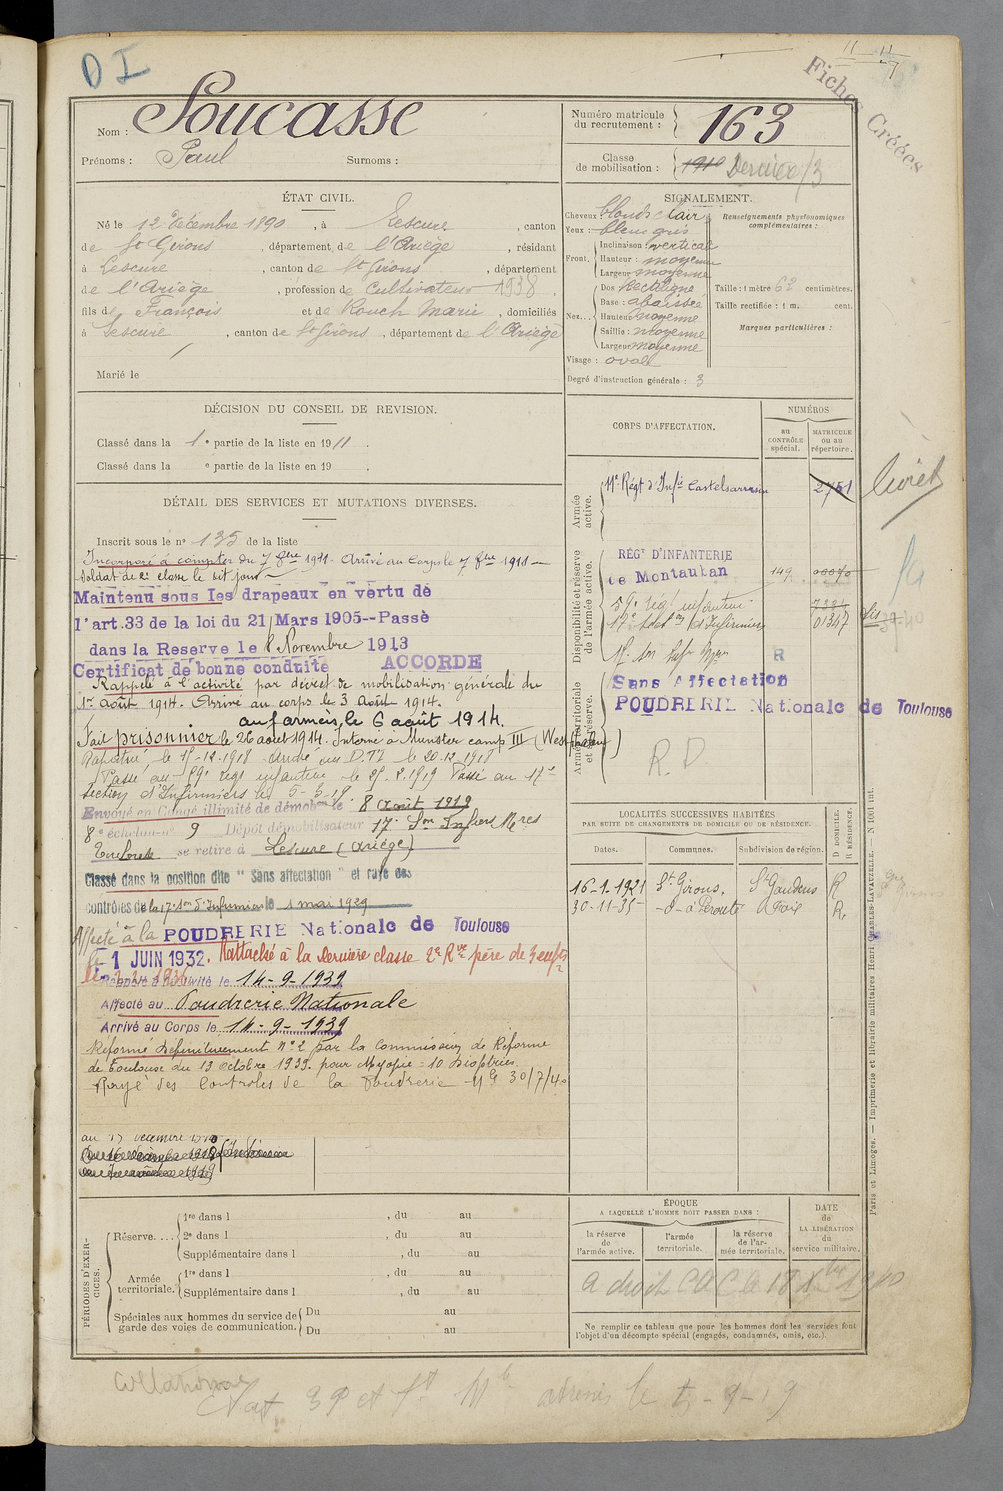 D I
Fiches Créées
Nom : Soucasse
Prénoms : Paul Surnoms :
Numéro matricule du recrutement : 163
Classe de mobilisation : 1910 Dernière/3
ÉTAT CIVIL.
Né le 12 décembre 1890, à Lescure, canton
de St Girons, département de l'Ariège, résidant
à Lescure, canton de St Girons, département
de l'Ariège, profession de Cultivateur 1938
fils de François et de Rouch Marie, domiciliés
à Lescure, canton de St Girons, département de l'Ariège
Marié le
SIGNALEMENT.
Cheveux blonds clair
Yeux : bleus gris
Front. Inclinaison : verticale
Hauteur : moyenne
Largeur moyenne
Nez... Dos Rectiligne
Base : abaissée
Hauteur moyenne
Saillie : moyenne
Largeur moyenne
Visage : ovale
Degré d'instruction générale : 3
Renseignements physionomiques complémentaires :
Taille : 1 mètre 62 centimètres.
Taille rectifiée : 1 m. cent.
Marques particulières :
DÉCISION DU CONSEIL DE REVISION.
Classé dans la 1e partie de la liste en 1911.
Classé dans la e partie de la liste en 19 .
DÉTAIL DES SERVICES ET MUTATIONS DIVERSES.
Inscrit sous le no 135 de la liste
Incorporé à compter du 7 8bre 1911. Arrivé au Corps le 7 8bre 1911
Soldat de 2e classe le dit jour
Maintenu sous les drapeaux en vertu de
l'art.33 de la loi du 21 Mars 1905--Passé
dans la Reserve le 8 Novembre 1913
Certificat de bonne conduite ACCORDE
Rappelé à l'activité par décret de mobilisation générale du
1er août 1914. Arrivé au corps le 3 Août 1914.
aux armées, le 6 août 1914.
Fait prisonnier le 26 août 1914. Interné à Munster camp III (Westphalen)
Rapatrié le 15-12-1918 le 20.12.1918
Passé au 59e rég infanterie le 1919 Passé au 17e
section d'Infirmiers le 5-5-19
Envoyé en Congé illimité de démobon le 8 Août 1919
8e échelon no 9 Dépôt démobilisateur 17e Son Infiers Mres
Toulouse se retire à Lescure (Ariège)
Classé dans la position dite " Sans affectation " et rayé des
contrôles de la 17e Son d'Infirmiers le 1 mai 1929
Affecté à la POUDRERIE Nationale de Toulouse
le 1 JUIN 1932. Rattaché à la dernière classe 2e Rve père de 3 enfts
Rappelé à l'activité le 14-9-1939
Affecté au Poudrerie Nationale
Arrivé au Corps le 14-9-1939
Réformé Définitivement no 2 par la Commission de Réforme
de Toulouse du 13 octobre 1939. pour Myopie = 10 Dioptries.
Rayé des Controles de la Poudrerie Nle 30/7/40
CORPS D'AFFECTATION.
NUMÉROS
au CONTRÔLE spécial.
MATRICULE ou au répertoire.
Armée active.
11e Régt d'Infie Castelsarrasin 2751
livret
Disponibilité et réserve de l'armée active.
RÉGt D'INFANTERIE
de Montauban 149
59e régt infanterie 7384
17e Son d'Infirmiers 01347
Armée territoriale et sa réserve.
Sans Affectation R
POUDRERIE Nationale de Toulouse
R.D
LOCALITÉS SUCCESSIVES HABITÉES
PAR SUITE DE CHANGEMENTS DE DOMICILE OU DE RÉSIDENCE.
Dates. Communes. Subdivision de région. D DOMICILE. R RÉSIDENCE.
16-1-1921 St Girons. St Gaudens R
30-11-35 -d- à Peroute Foix R.
Paris et Limoges. — Imprimerie et librairie militaires Henri CHARLES-LAVAUZELLE. — N 1001 int.
PÉRIODES D'EXERCICES.
Réserve....
1re dans l , du au
2e dans l , du au
Supplémentaire dans l , du au
Armée territoriale.
1re dans l , du au
Supplémentaire dans l , du au
Spéciales aux hommes du service de garde des voies de communication.
Du au
Du au
ÉPOQUE
A LAQUELLE L'HOMME DOIT PASSER DANS :
la réserve de l'armée active.
l'armée territoriale.
la réserve de l'armée territoriale.
DATE de LA LIBÉRATION du service militaire.
a droit C A C le 18 Xbre 1940
Ne remplir ce tableau que pour les hommes dont les services font
l'objet d'un décompte spécial (engagés, condamnés, omis, etc.).
Collationné